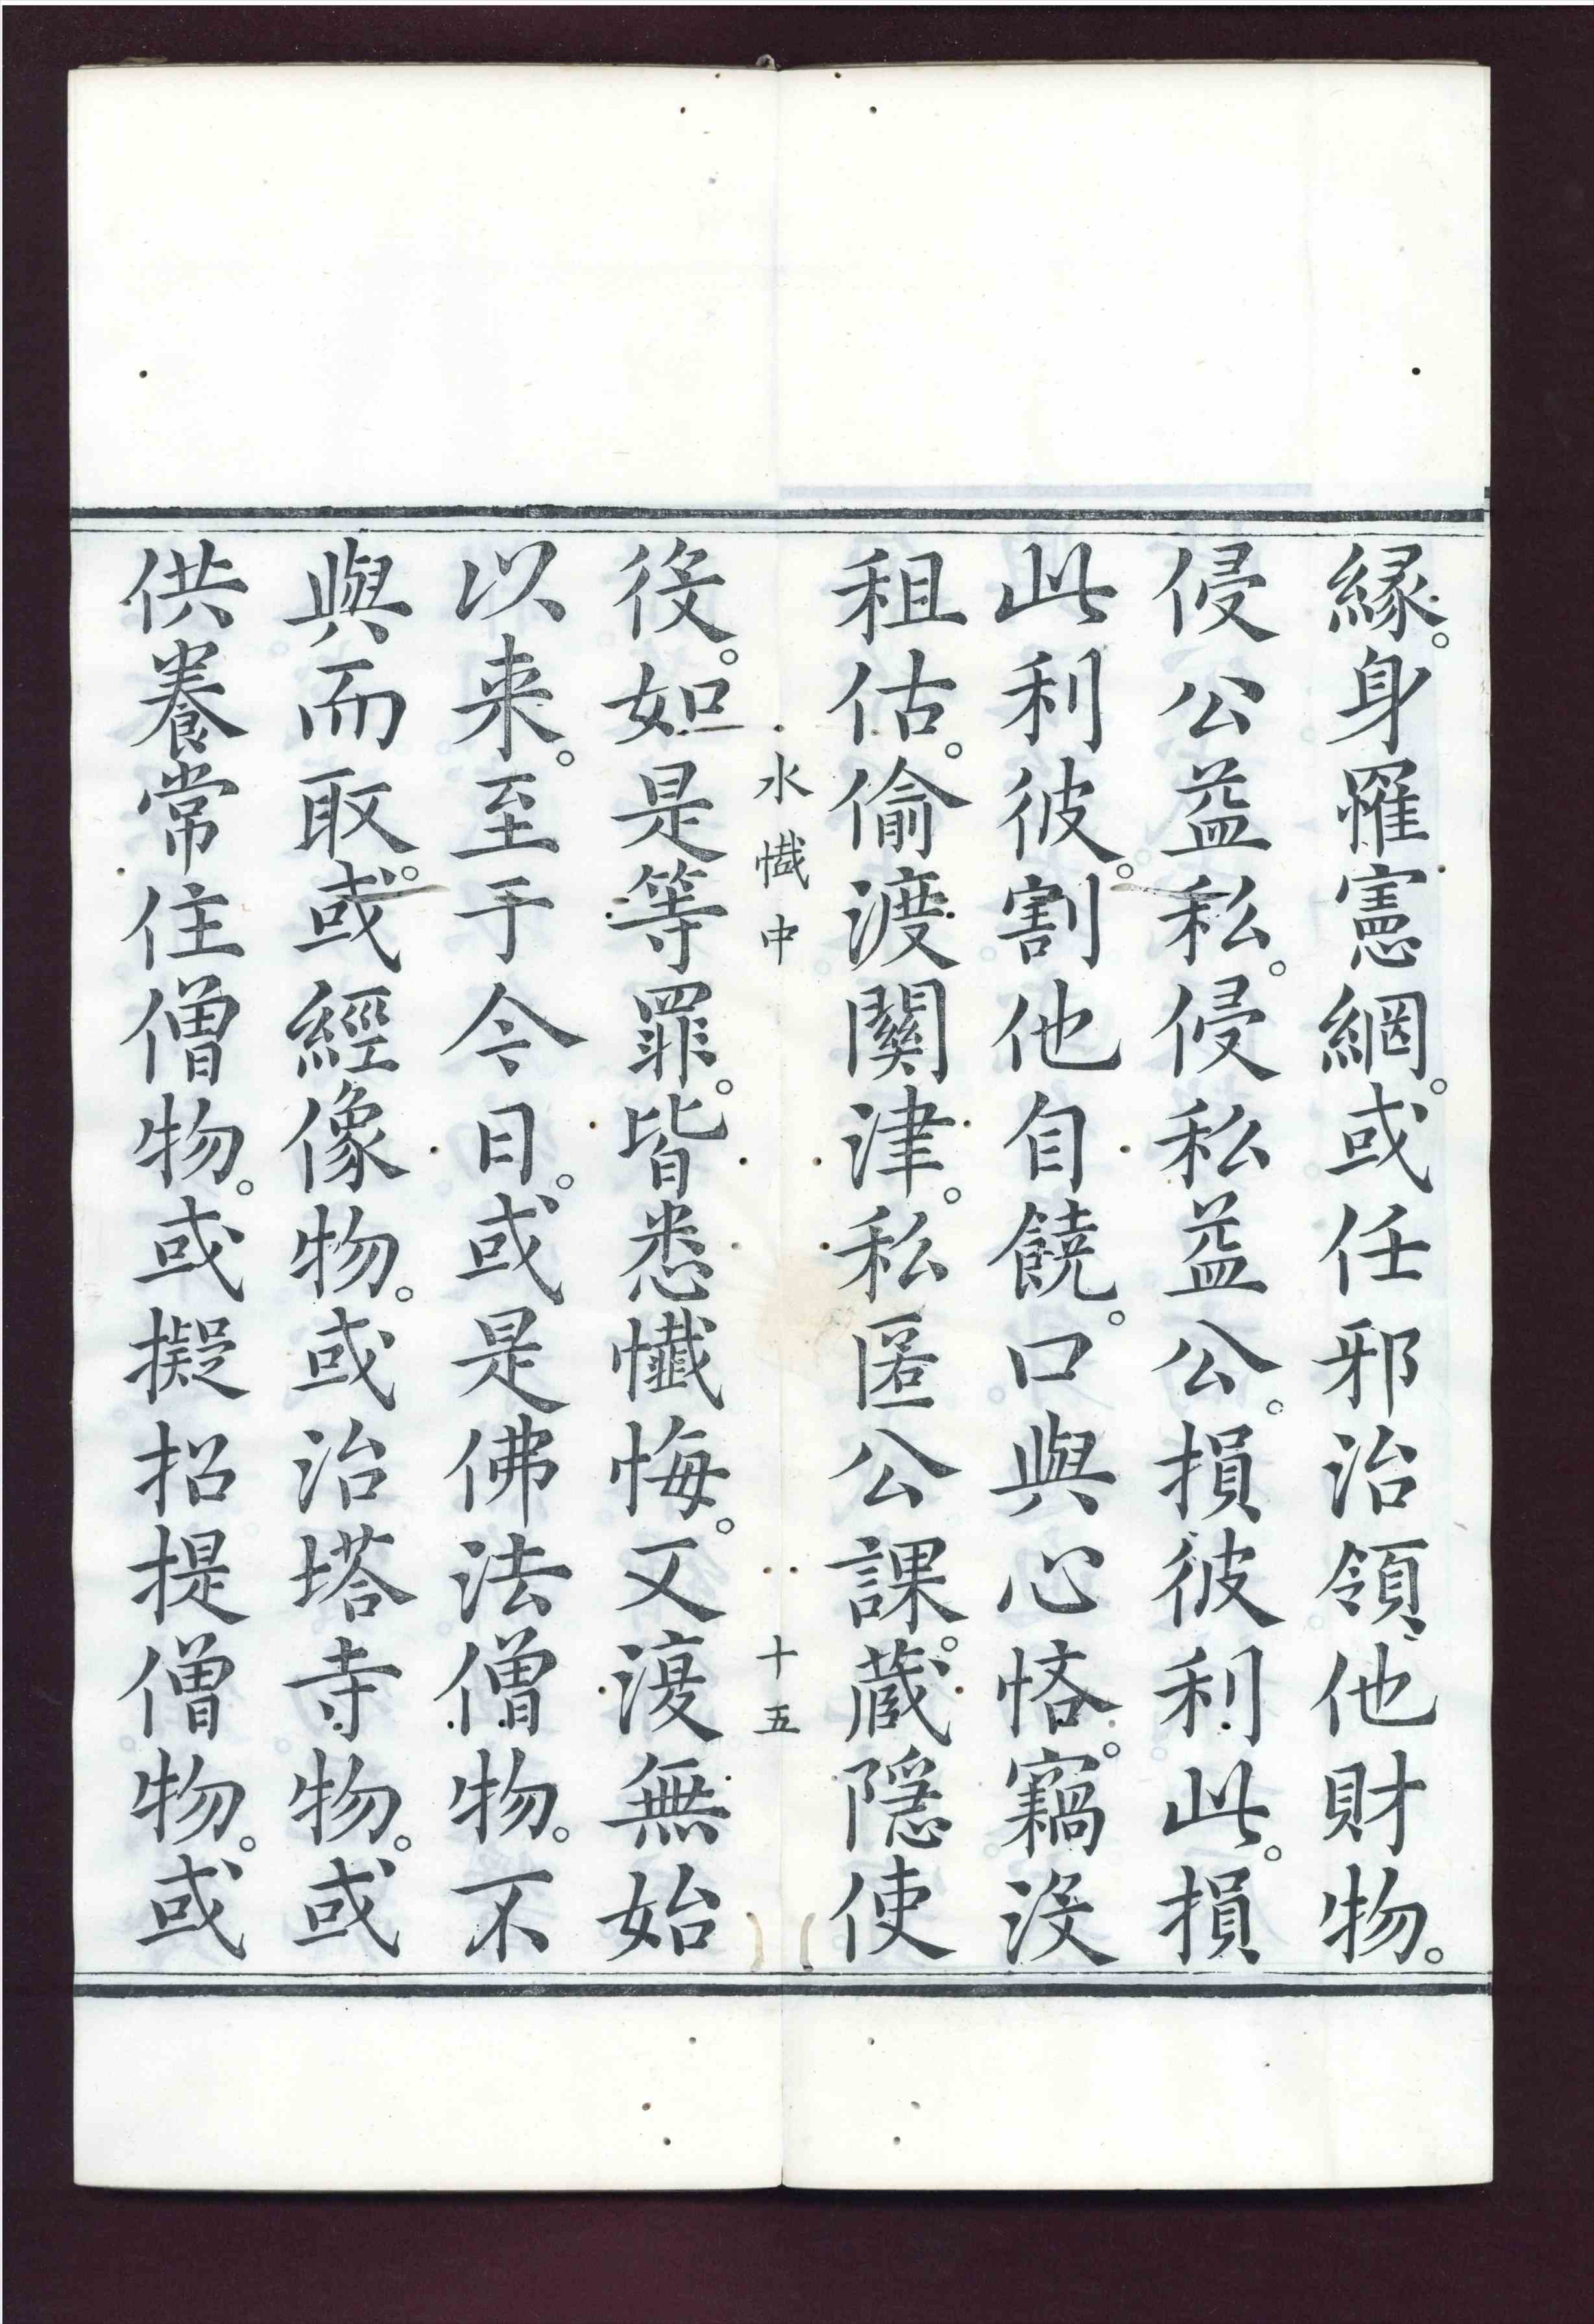 緣。身罹憲網。或任邪治領他財物。
侵公益私。侵私益公。損彼利此。損
此利彼。割他自饒。口與心悋。竊沒
租估。偷渡關津。私匿公課。藏隱使
水懺中
十五
役。如是等罪。皆悉懺悔。又復無始
以来。至于今日。或是佛法僧物。不
與而取。或經像物。或治塔寺物。或
供養常住僧物。或擬招提僧物。或